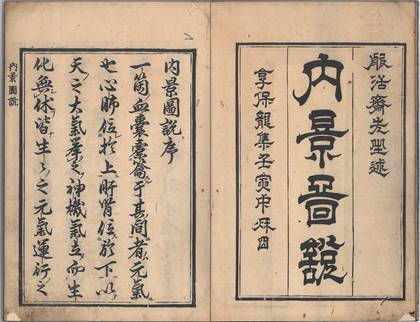 服活齋先生述
内景啚説
享保龍集壬寅
内景圖説序
一箇血囊橐籥于其間者元氣
也心肺位於上肝腎位於下以
天之大氣舉之神機氣立而生
化無休皆生〻之元氣運行之
内景圖説